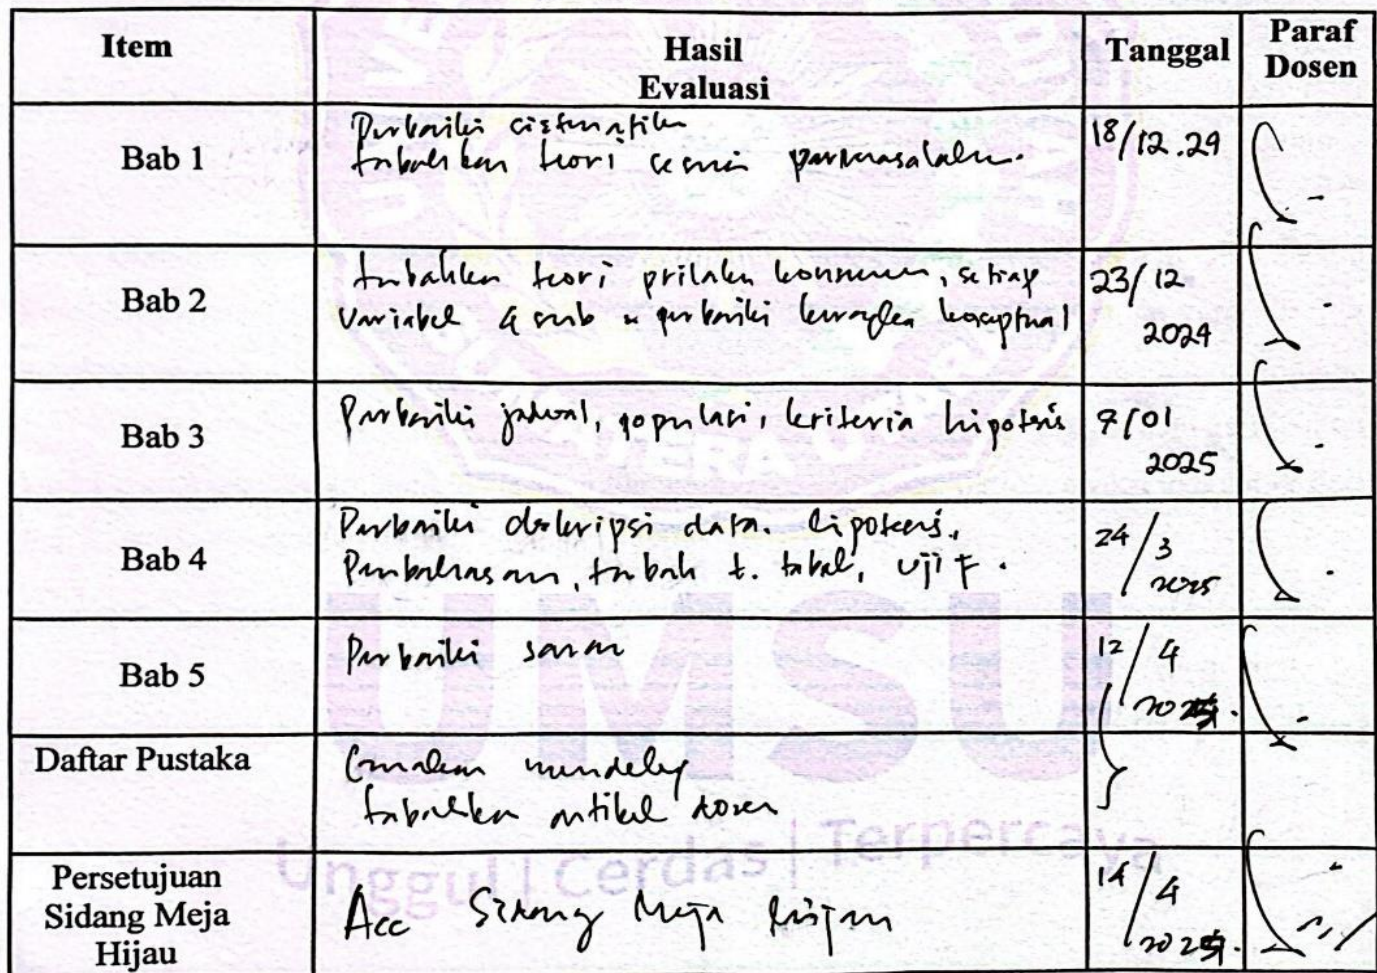 Item
Hasil
Evaluasi
Tanggal
Paraf
Dosen
Bab 1
Perbaiki sistematika
tambahkan teori sesuai permasalahan.
18/12.24
Bab 2
tambahkan teori prilaku konsumen, setiap
variabel & sub perbaiki kerangka konseptual
23/12
2024
Bab 3
Perbaiki jadwal, populasi, kriteria hipotesis
7/01
2025
Bab 4
Perbaiki deskripsi data. hipotesis.
Pembahasan, tambah t. tabel, uji F.
24/3
2025
Bab 5
Perbaiki saran
12/4
2025.
Daftar Pustaka
Gunakan mendeley
tambahkan artikel dosen
Persetujuan
Sidang Meja
Hijau
Acc Sidang Meja Hijau
14/4
2025.
UMSU
Unggul | Cerdas | Terpercaya